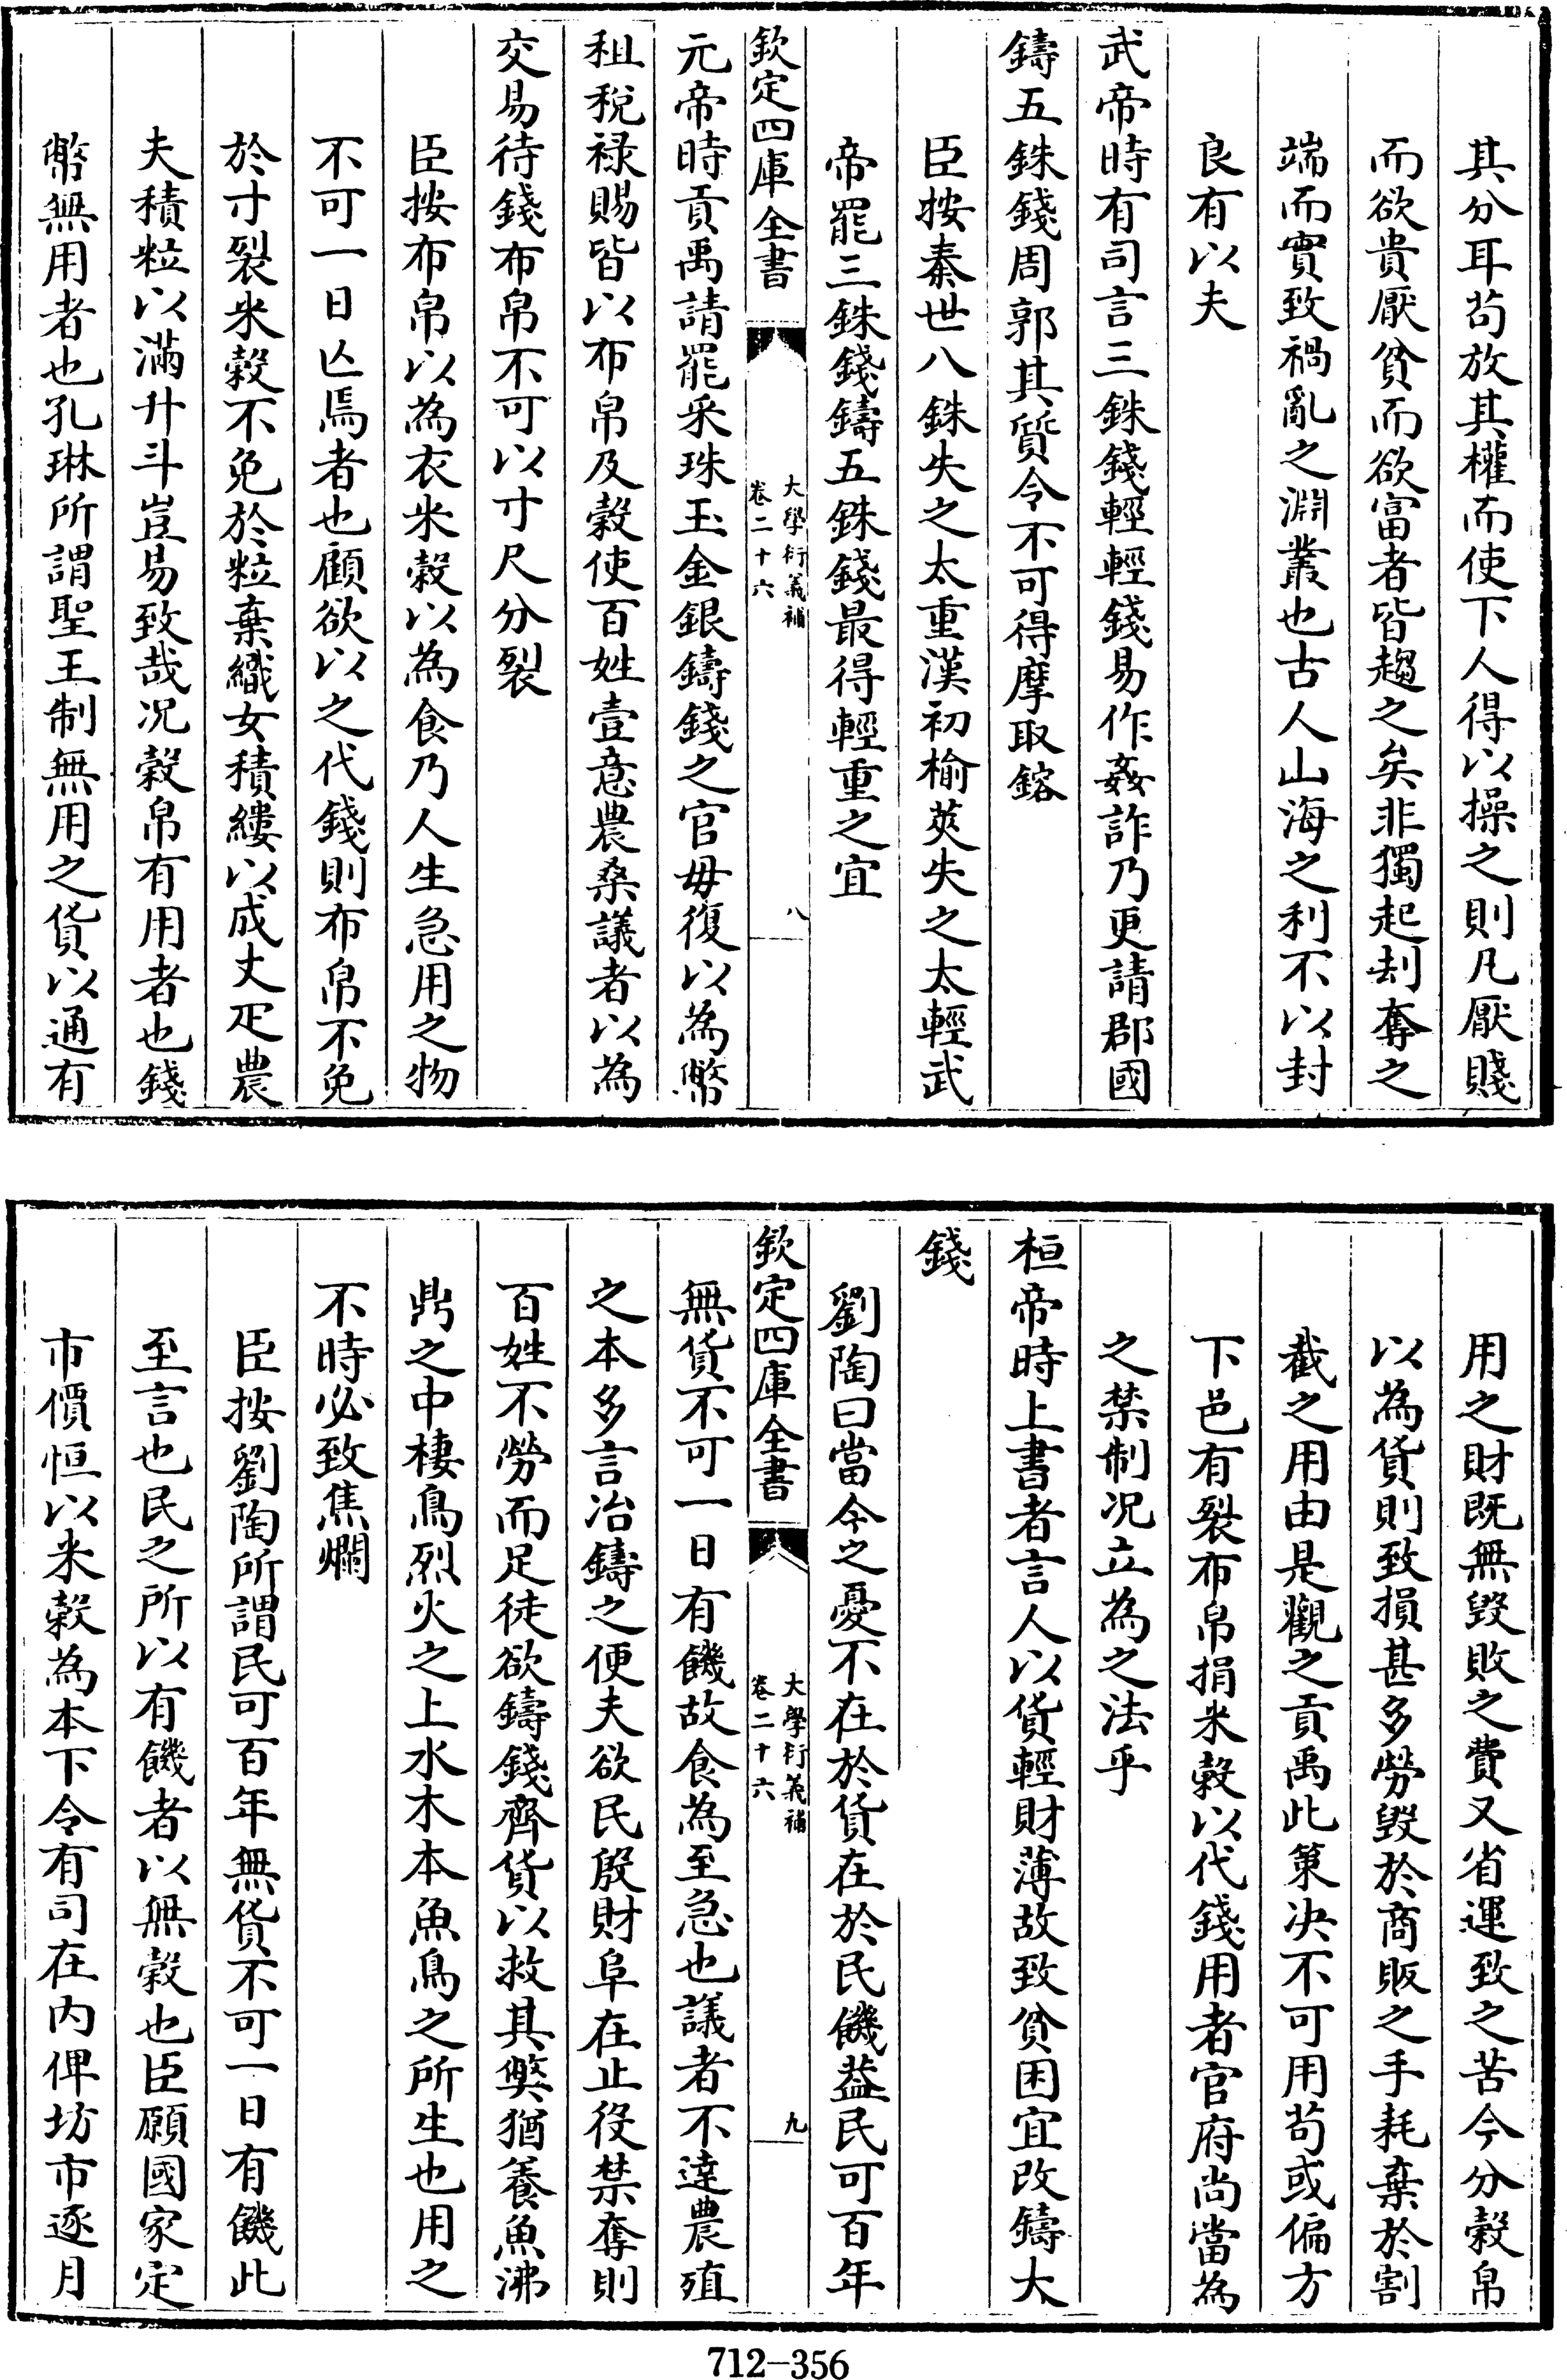 其分耳茍放其權而使下人得以操之則凡厭賤
而欲貴厭貧而欲富者皆趨之矣非獨起刦奪之
端而實致禍亂之淵叢也古人山海之利不以封
良有以夫
武帝時有司言三銖錢輕輕錢易作姦詐乃更請郡國
鑄五銖錢周郭其質令不可得摩取鎔
臣按秦世八銖失之太重漢初榆莢失之太輕武
帝罷三銖錢鑄五銖錢最得輕重之宜
欽定四庫全書
大學衍義補
卷二十六
八
元帝時貢禹請罷采珠玉金銀鑄錢之官毋復以為幣
租稅祿賜皆以布帛及穀使百姓壹意農桑議者以為
交易待錢布帛不可以寸尺分裂
臣按布帛以為衣米穀以為食乃人生急用之物
不可一日亾焉者也顧欲以之代錢則布帛不免
於寸裂米穀不免於粒棄織女積縷以成丈疋農
夫積粒以滿升斗豈易致哉况穀帛有用者也錢
幣無用者也孔琳所謂聖王制無用之貨以通有
用之財既無毀敗之費又省運致之苦今分穀帛
以為貨則致損甚多勞毀於商販之手耗棄於割
截之用由是觀之貢禹此策决不可用茍或偏方
下邑有裂布帛捐米穀以代錢用者官府尚當為
之禁制况立為之法乎
桓帝時上書者言人以貨輕財薄故致貧困宜改鑄大
錢
劉陶曰當今之憂不在於貨在於民饑葢民可百年
欽定四庫全書
大學衍義補
卷二十六
九
無貨不可一日有饑故食為至急也議者不達農殖
之本多言冶鑄之便夫欲民殷財阜在止役禁奪則
百姓不勞而足徒欲鑄錢齊貨以救其獘猶養魚沸
鼎之中棲鳥烈火之上水木本魚鳥之所生也用之
不時必致焦爛
臣按劉陶所謂民可百年無貨不可一日有饑此
至言也民之所以有饑者以無穀也臣願國家定
市價恒以米穀為本下令有司在内俾坊市逐月
712-356